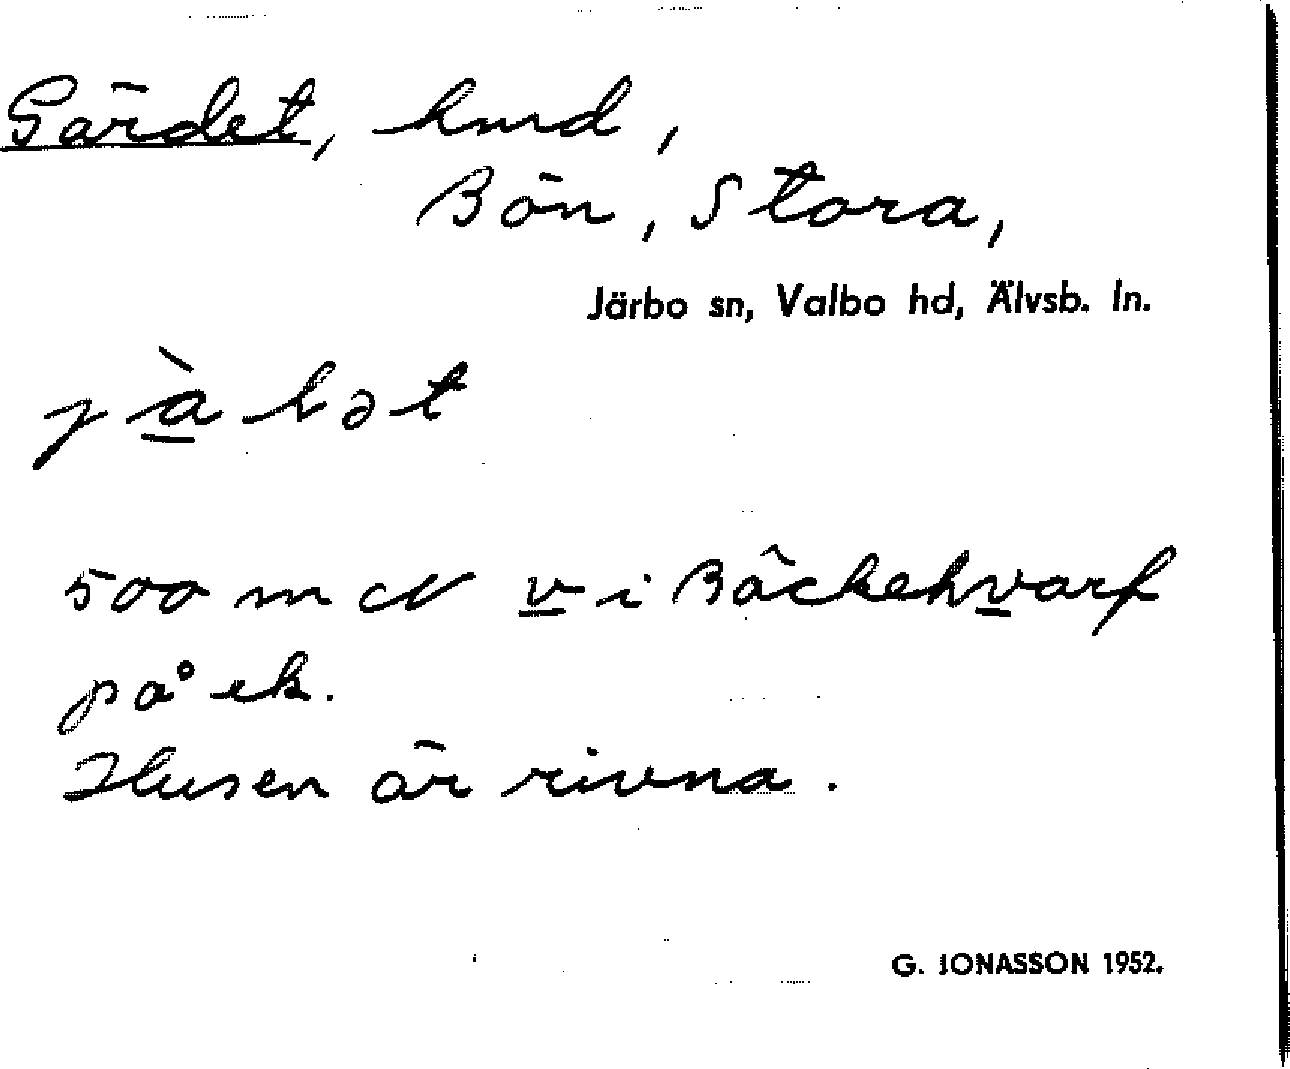 Gärdet, hmd,
Bön, Stora,
Järbo sn, Valbo hd, Älvsb. ln.
500 m NV v i Bäckehvarf
på ek.
Husen är rivna.
G. JONASSON 1952.